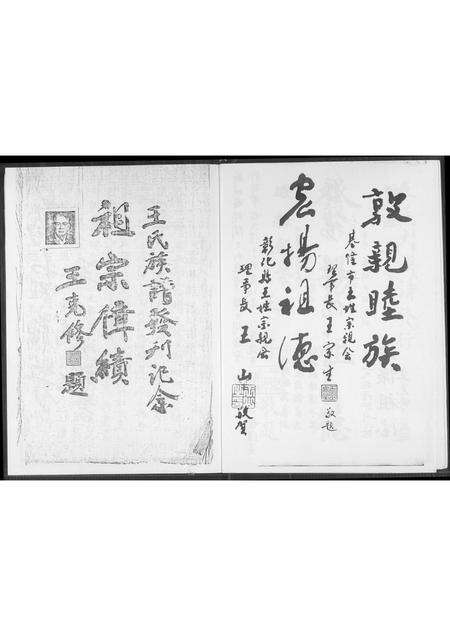 敦親睦族
基隆市王姓宗親會
理事長王宗生敬題
宏揚祖德
彰化縣王姓宗親會
理事長王山敬賀
王氏族譜發刋記念
祖宗偉績
王克修題